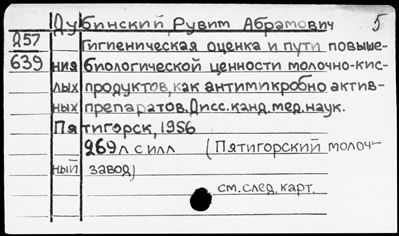 Дубинский, Рувим Абрамович 5
Д57 Гигиеническая оценка и пути повыше-
639 ния биологической ценности молочно-кис-
лых продуктов, как антимикробно актив-
ных препаратов. Дисс. канд. мед. наук.
Пятигорск, 1956
269 л с илл (Пятигорский молоч-
ный завод)
см. след. карт.